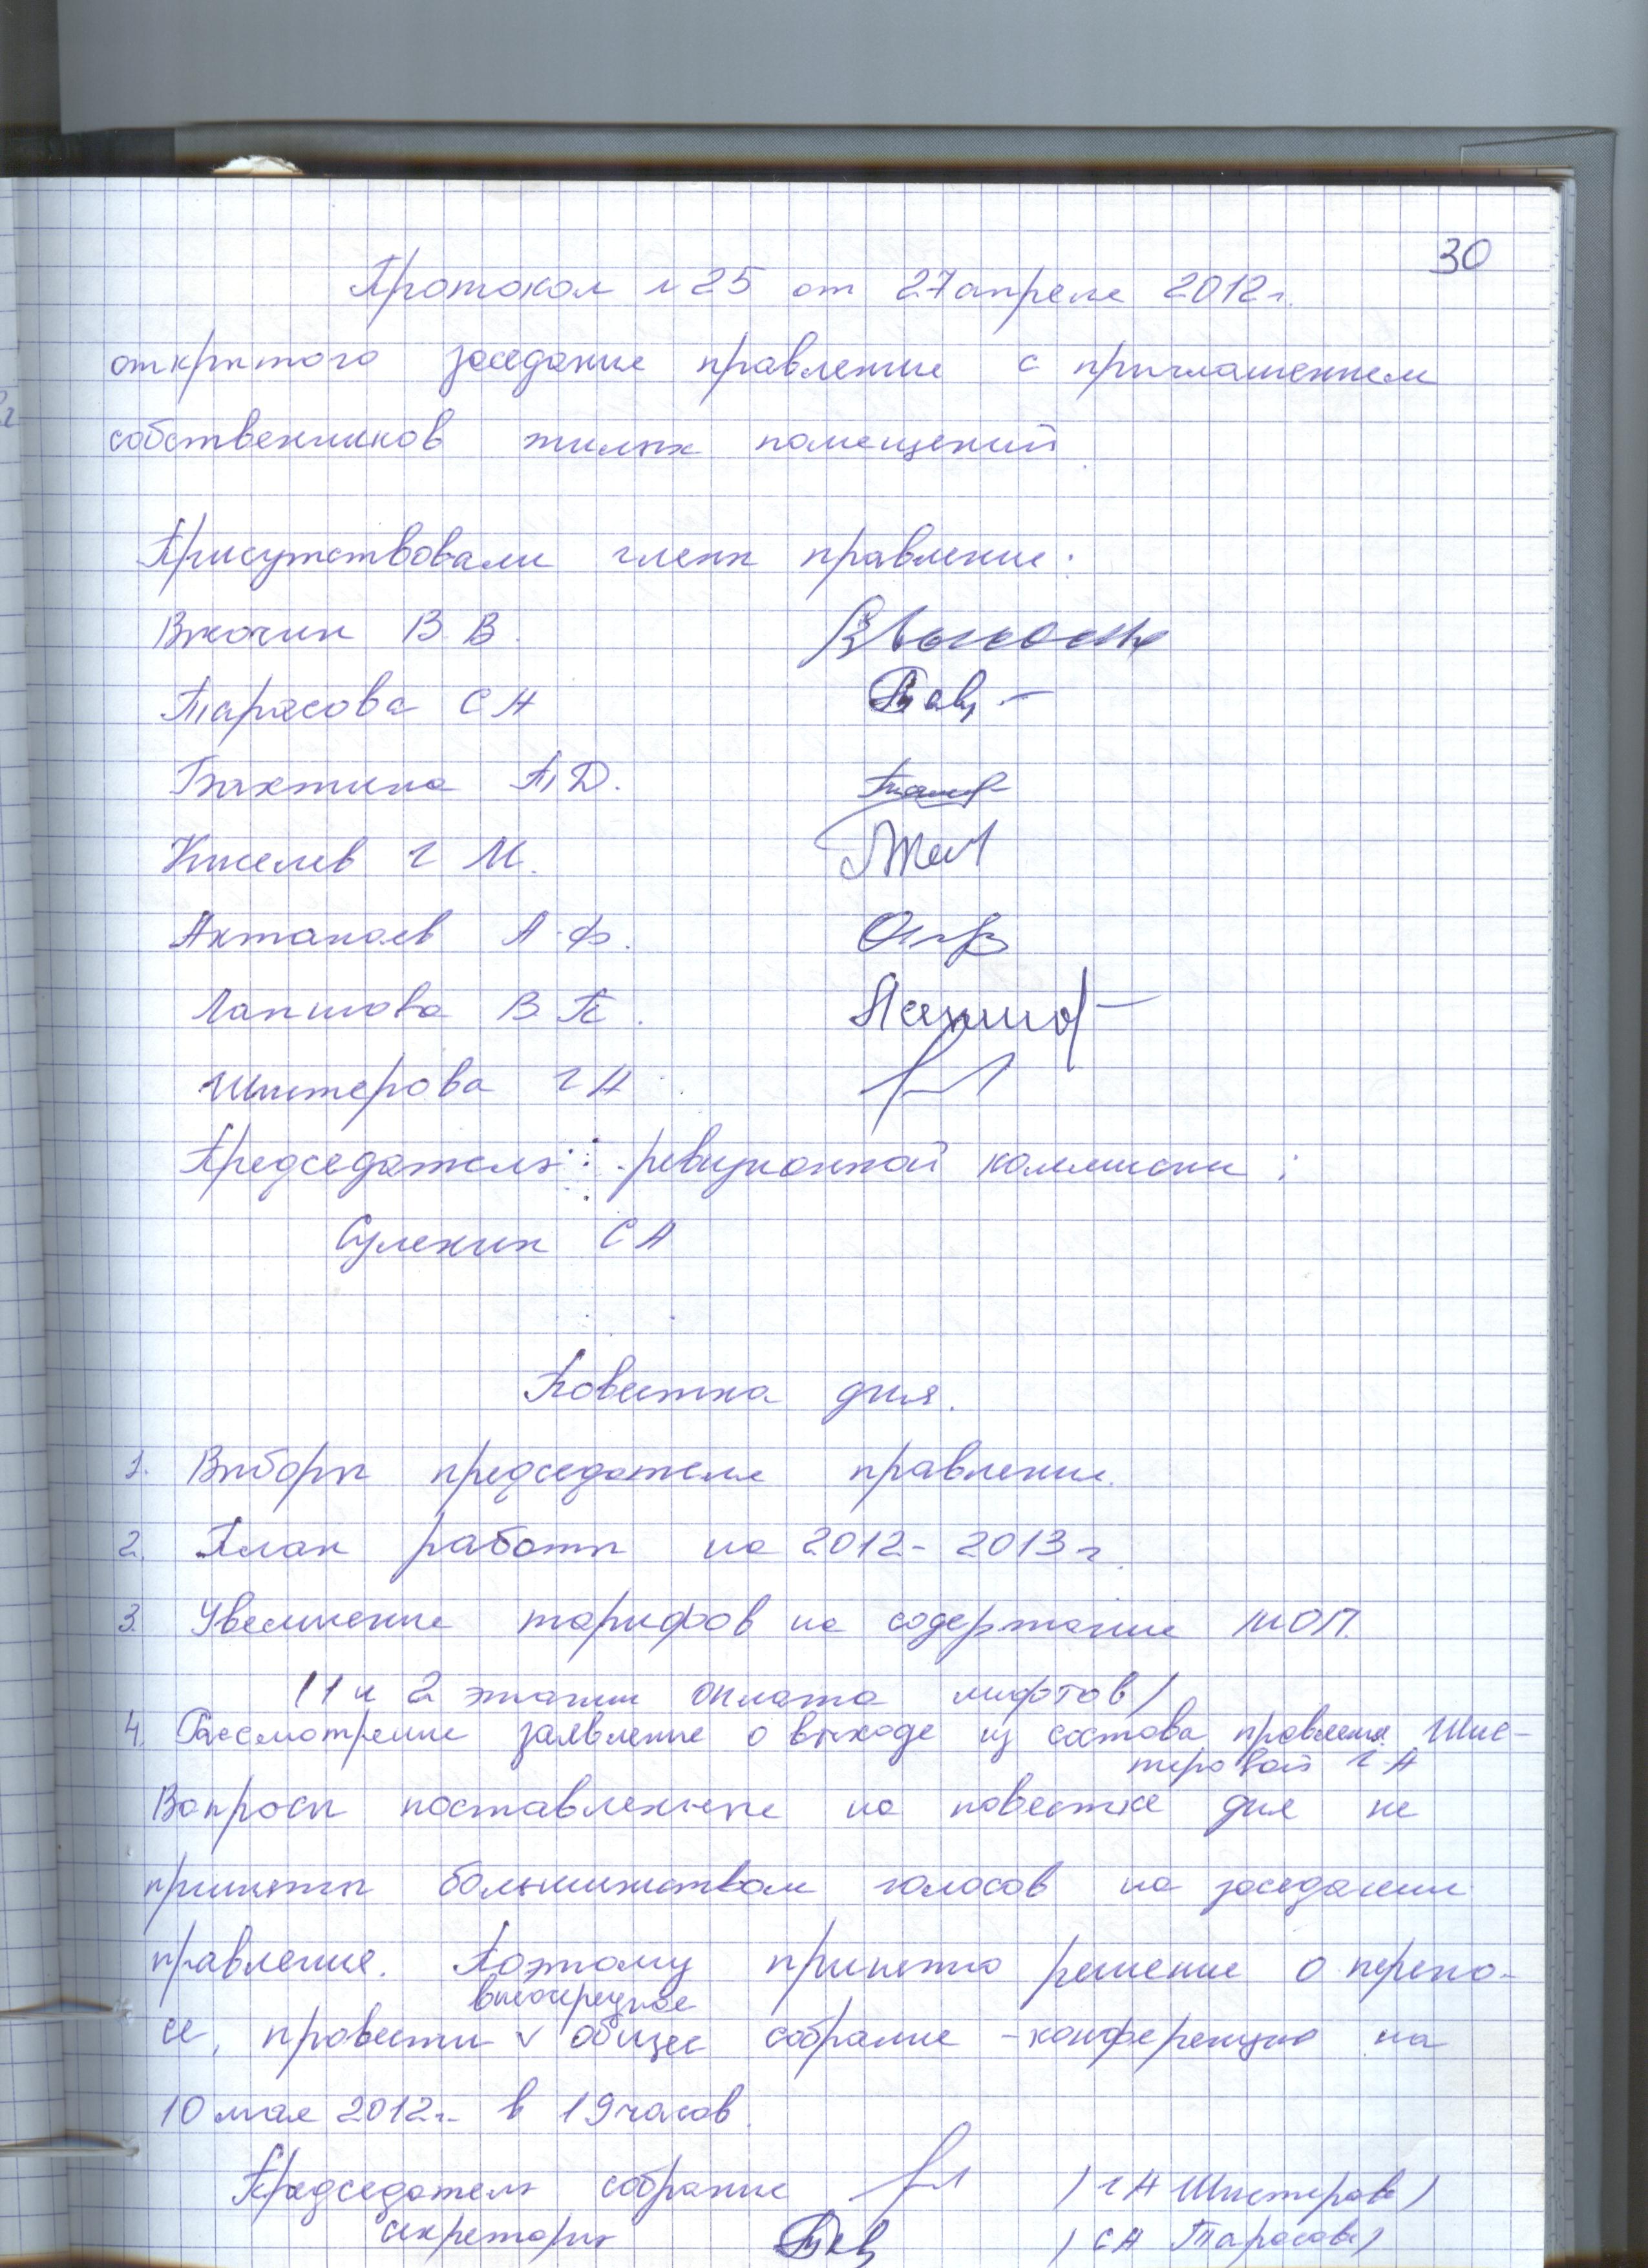 30
Протокол №25 от 27 апреля 2012г.
открытого заседания правления с приглашением
собственников жилых помещений.
Присутствовали члены правления:
Вяхочин В.В.
Тарасова С А
Бахтина П Д.
Киселев Г М.
Актанаев А.Ф.
Лапшова В П.
Шистерова Г А.
Председатель ревизионной коммисии:
Суленин С А
Повестка дня.
1. Выборы председателя правления.
2. План работы на 2012-2013 г.
3. Увеличение тарифов на содержание МОП.
(1 и 2 этажи оплата лифтов)
4. Рассмотрение заявления о выходе из состава правления Шис-
теровой Г А
Вопросы поставленные на повестке дня не
приняты большинством голосов на заседании
правления. Поэтому принято решение о перено-
внеочередное
се, провести v общее собрание - конференцию на
10 мая 2012г. в 19 часов.
Председатель собрания (Г А Шистерова)
секретарь (С А Тарасова)